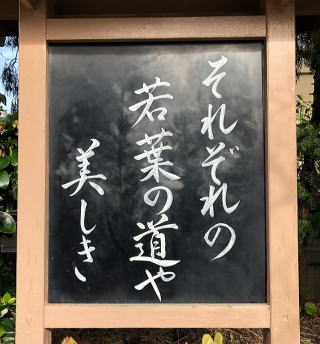 それぞれの
若葉の道や
美しき